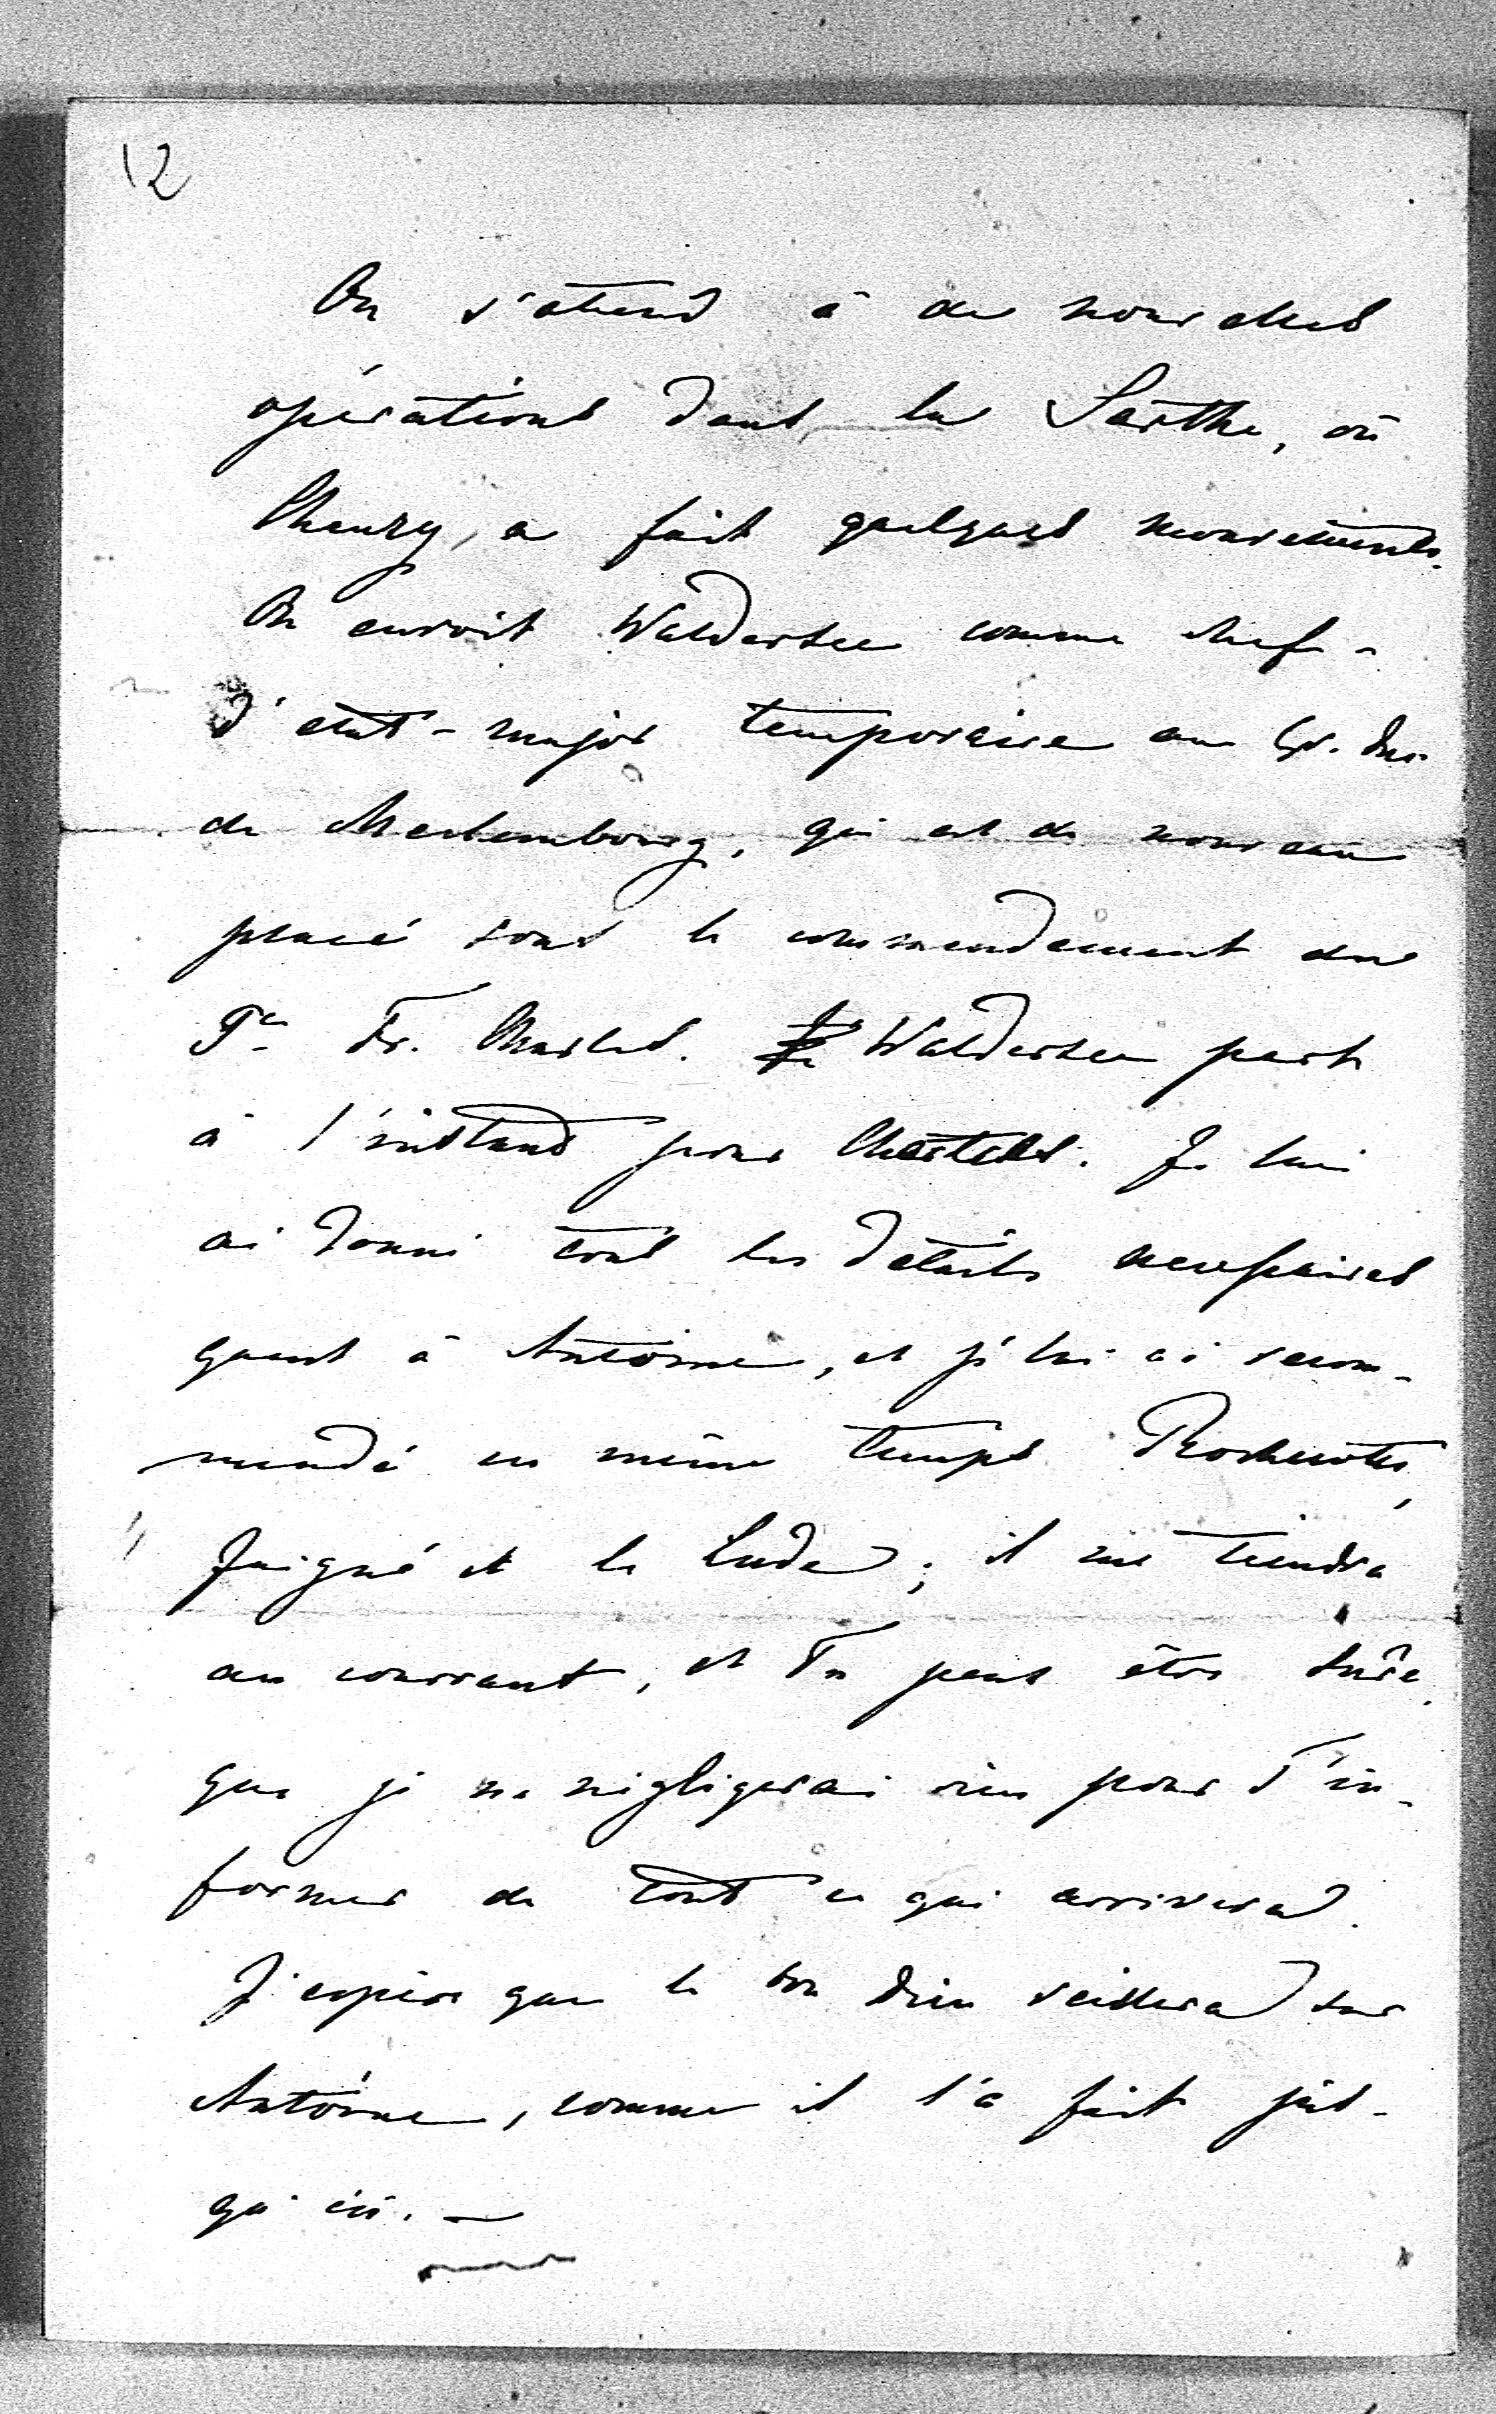 12
On s'attend à de nouvelles
opérations dans la Sarthe, où
Chanzy, a fait quelques mouvements.
On envoit Waldersee comme chef-
d'état-major temporaire au Gr. Duc
de Meclembourg, qui est de nouveau
placé sous le commendement du
Pce Fr. Charles. Waldersee part
à l'instand pour Chartres. Je lui
ai donné tous les détails necessaires
quant à Antoine, et je lui ai recom-
mendé en même temps Rochecotte,
Juigné et le Lude; il me tiendra
au courrant, et Tu peus être sûre
que je ne négligerai rien pour T'in-
former de tout ce qui arrivera.
J'espère que le bon Dieu veillera sur
Antoine, comme il l'a fait jus-
qu'ici. —